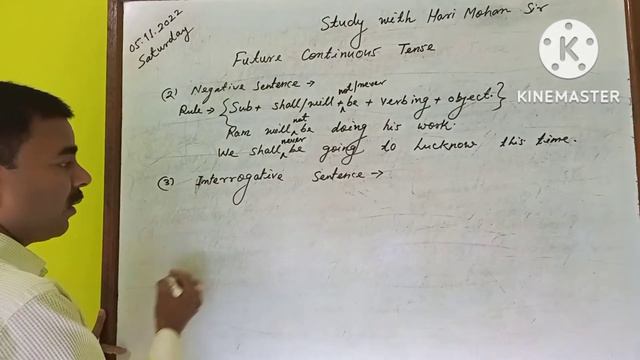 05.11.2022
Saturday
Study with Hari Mohan Sir
Future Continuous Tense
(2) Negative Sentence →
Rule → { Sub + shall/will + not/never be + verbing + object. }
Ram will not be doing his work.
We shall never be going to Lucknow this time.
(3) Interrogative Sentence →
K
KINEMASTER